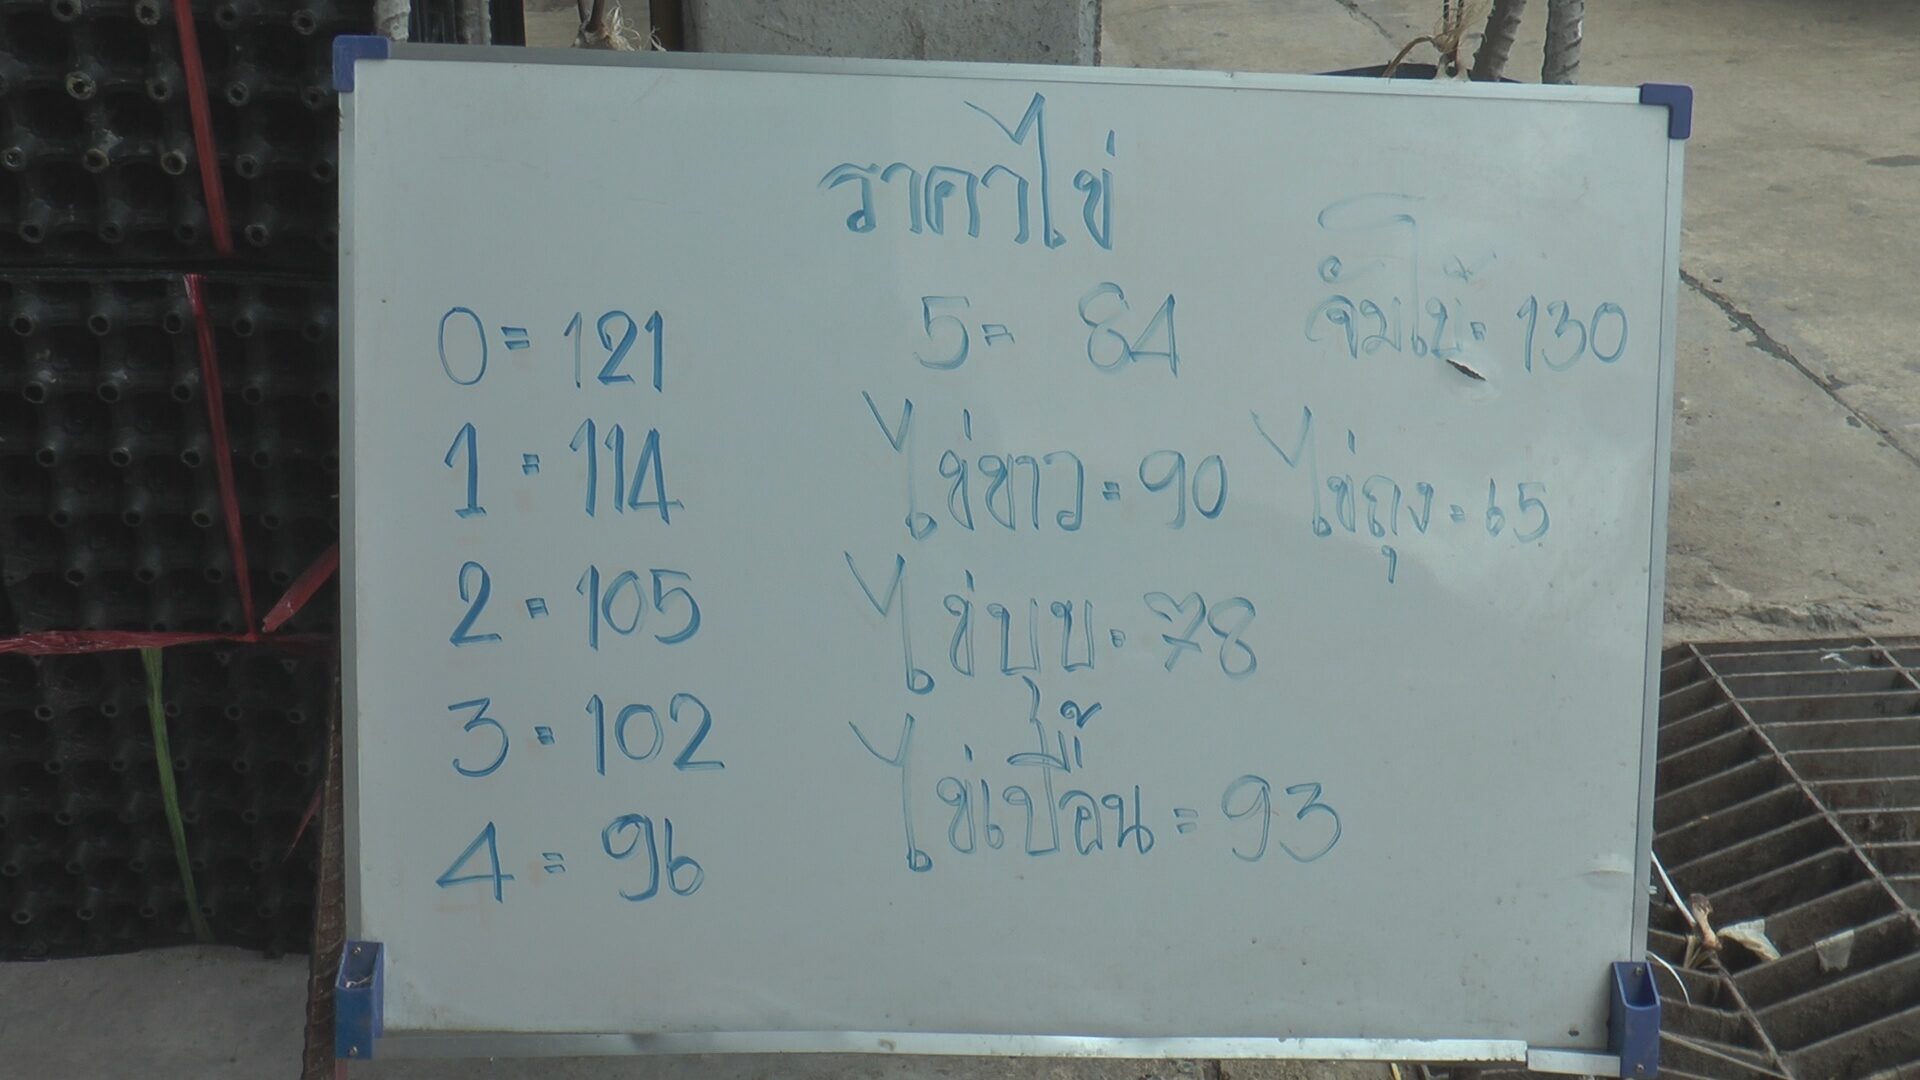 ราคาไข่
0 = 121
1 = 114
2 = 105
3 = 102
4 = 96
5 = 84
ไข่ขาว = 90
ไข่บุบ = 78
ไข่เปื้อน = 93
จัมโบ้ = 130
ไข่ถุง = 65